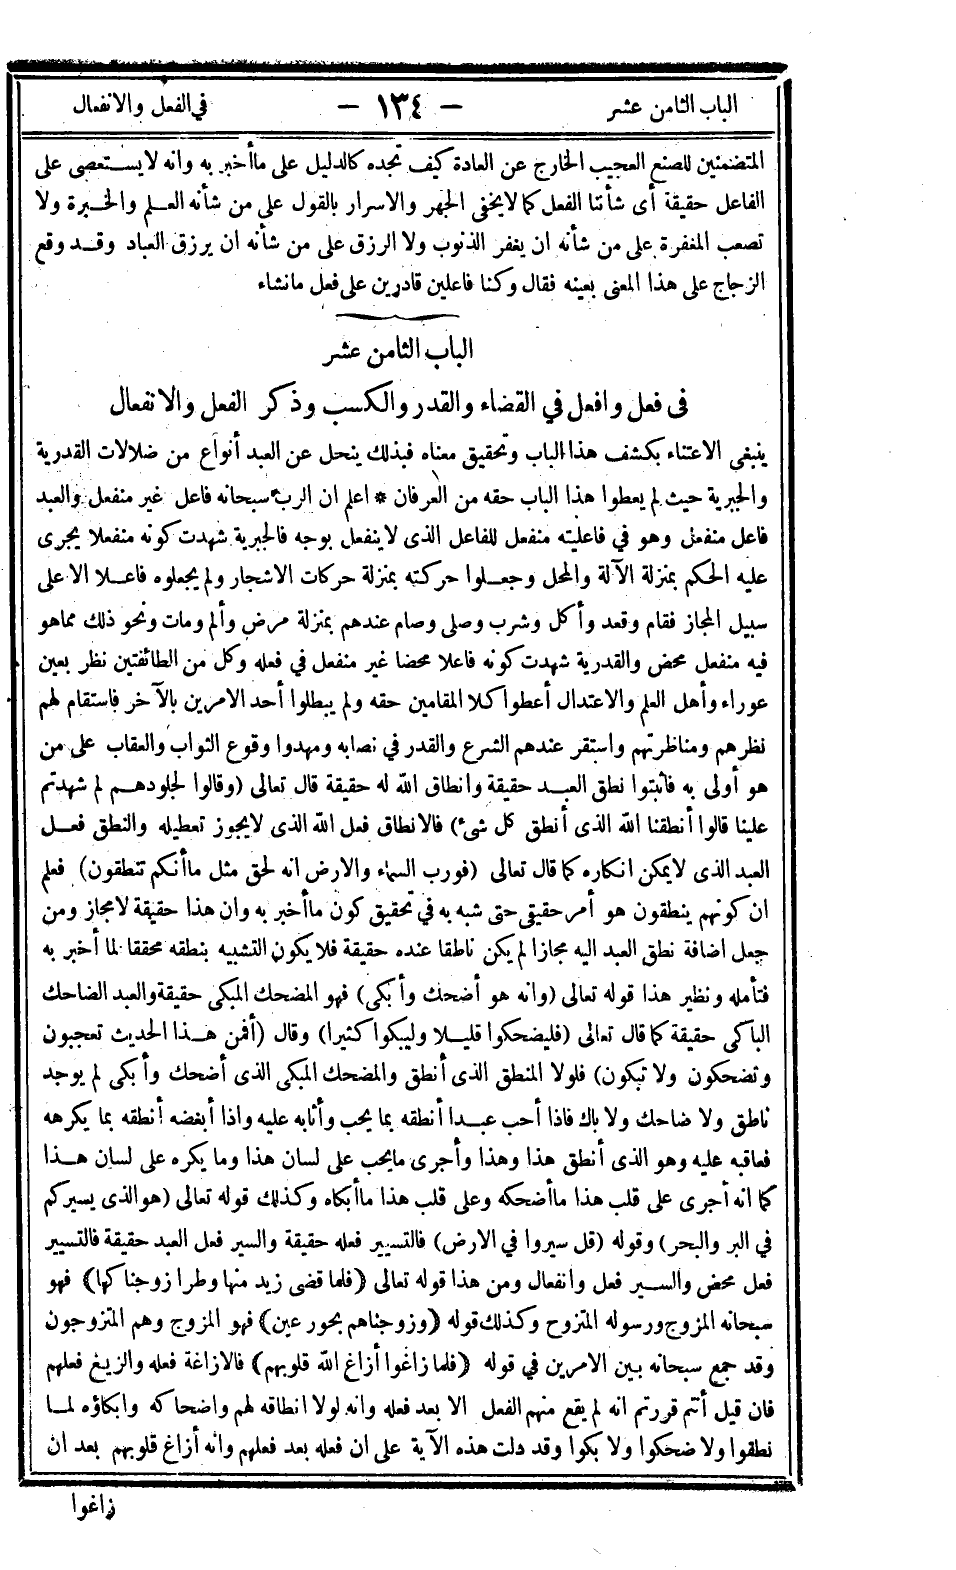 الباب الثامن عشر — ١٣٤ — في الفعل والانفعال
المتضمنين للصنع العجيب الخارج عن العادة كيف تجده كالدليل على ماأخبر به وانه لايستعصى على
الفاعل حقيقة أى شأننا الفعل كما لايخفى الجهر والاسرار بالقول على من شأنه العلم والخبرة ولا
تصعب المغفرة على من شأنه ان يغفر الذنوب ولا الرزق على من شأنه ان يرزق العباد وقد وقع
الزجاج على هذا المعنى بعينه فقال وكنا فاعلين قادرين على فعل مانشاء
الباب الثامن عشر
فى فعل وافعل في القضاء والقدر والكسب وذكر الفعل والانفعال
ينبغى الاعتناء بكشف هذا الباب وتحقيق معناه فبذلك ينحل عن العبد أنواع من ضلالات القدرية
والجبرية حيث لم يعطوا هذا الباب حقه من العرفان * اعلم ان الرب سبحانه فاعل غير منفعل والعبد
فاعل منفعل وهو في فاعليته منفعل للفاعل الذى لاينفعل بوجه فالجبرية شهدت كونه منفعلا يجرى
عليه الحكم بمنزلة الآلة والمحل وجعلوا حركته بمنزلة حركات الاشجار ولم يجعلوه فاعلا الا على
سبيل المجاز فقام وقعد وأكل وشرب وصلى وصام عندهم بمنزلة مرض وألم ومات ونحو ذلك مماهو
فيه منفعل محض والقدرية شهدت كونه فاعلا محضا غير منفعل في فعله وكل من الطائفتين نظر بعين
عوراء وأهل العلم والاعتدال أعطوا كلا المقامين حقه ولم يبطلوا أحد الامرين بالآخر فاستقام لهم
نظرهم ومناظرتهم واستقر عندهم الشرع والقدر في نصابه ومهدوا وقوع الثواب والعقاب على من
هو أولى به فأثبتوا نطق العبد حقيقة وانطاق الله له حقيقة قال تعالى (وقالوا لجلودهم لم شهدتم
علينا قالوا أنطقنا الله الذى أنطق كل شئ) فالانطاق فعل الله الذى لايجوز تعطيله والنطق فعل
العبد الذى لايمكن انكاره كما قال تعالى (فورب السماء والارض انه لحق مثل ماأنكم تنطقون) فعلم
ان كونهم ينطقون هو أمر حقيقى حتى شبه به في تحقيق كون ماأخبر به وان هذا حقيقة لامجاز ومن
جعل اضافة نطق العبد اليه مجازا لم يكن ناطقا عنده حقيقة فلا يكون التشبيه بنطقه محققا لما أخبر به
فتأمله ونظير هذا قوله تعالى (وانه هو أضحك وأبكى) فهو المضحك المبكى حقيقة والعبد الضاحك
الباكى حقيقة كما قال تعالى (فليضحكوا قليلا وليبكوا كثيرا) وقال (أفمن هذا الحديث تعجبون
وتضحكون ولا تبكون) فلولا المنطق الذى أنطق والمضحك المبكى الذى أضحك وأبكى لم يوجد
ناطق ولا ضاحك ولا باك فاذا أحب عبدا أنطقه بما يحب وأثابه عليه واذا أبغضه أنطقه بما يكرهه
فعاقبه عليه وهو الذى أنطق هذا وهذا وأجرى مايحب على لسان هذا وما يكره على لسان هذا
كما انه أجرى على قلب هذا ماأضحكه وعلى قلب هذا ماأبكاه وكذلك قوله تعالى (هو الذى يسيركم
في البر والبحر) وقوله (قل سيروا في الارض) فالتسيير فعله حقيقة والسير فعل العبد حقيقة فالتسيير
فعل محض والسير فعل وانفعال ومن هذا قوله تعالى (فلما قضى زيد منها وطرا زوجناكها) فهو
سبحانه المزوج ورسوله المتزوج وكذلك قوله (وزوجناهم بحور عين) فهو المزوج وهم المتزوجون
وقد جمع سبحانه بين الامرين في قوله (فلما زاغوا أزاغ الله قلوبهم) فالازاغة فعله والزيغ فعلهم
فان قيل أنتم قررتم انه لم يقع منهم الفعل الا بعد فعله وانه لولا انطاقه لهم واضحاكه وابكاؤه لما
نطقوا ولا ضحكوا ولا بكوا وقد دلت هذه الآية على ان فعله بعد فعلهم وانه أزاغ قلوبهم بعد ان
زاغوا